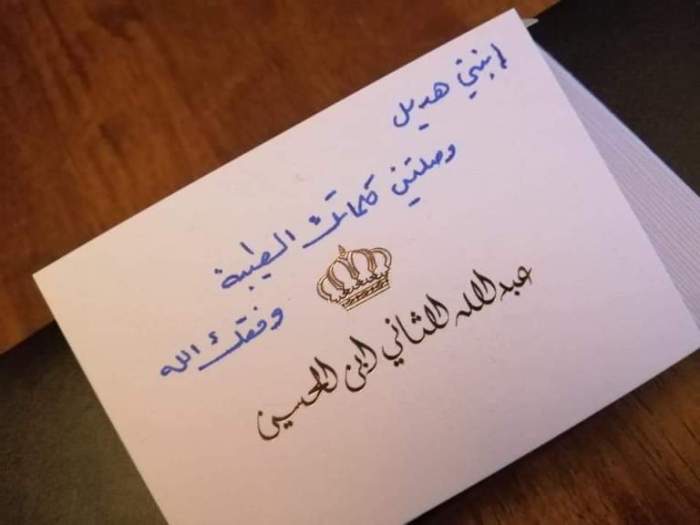 إبنتي هديل
وصلتني كلماتك الطيبة
وفقك الله
عبدالله الثاني ابن الحسين